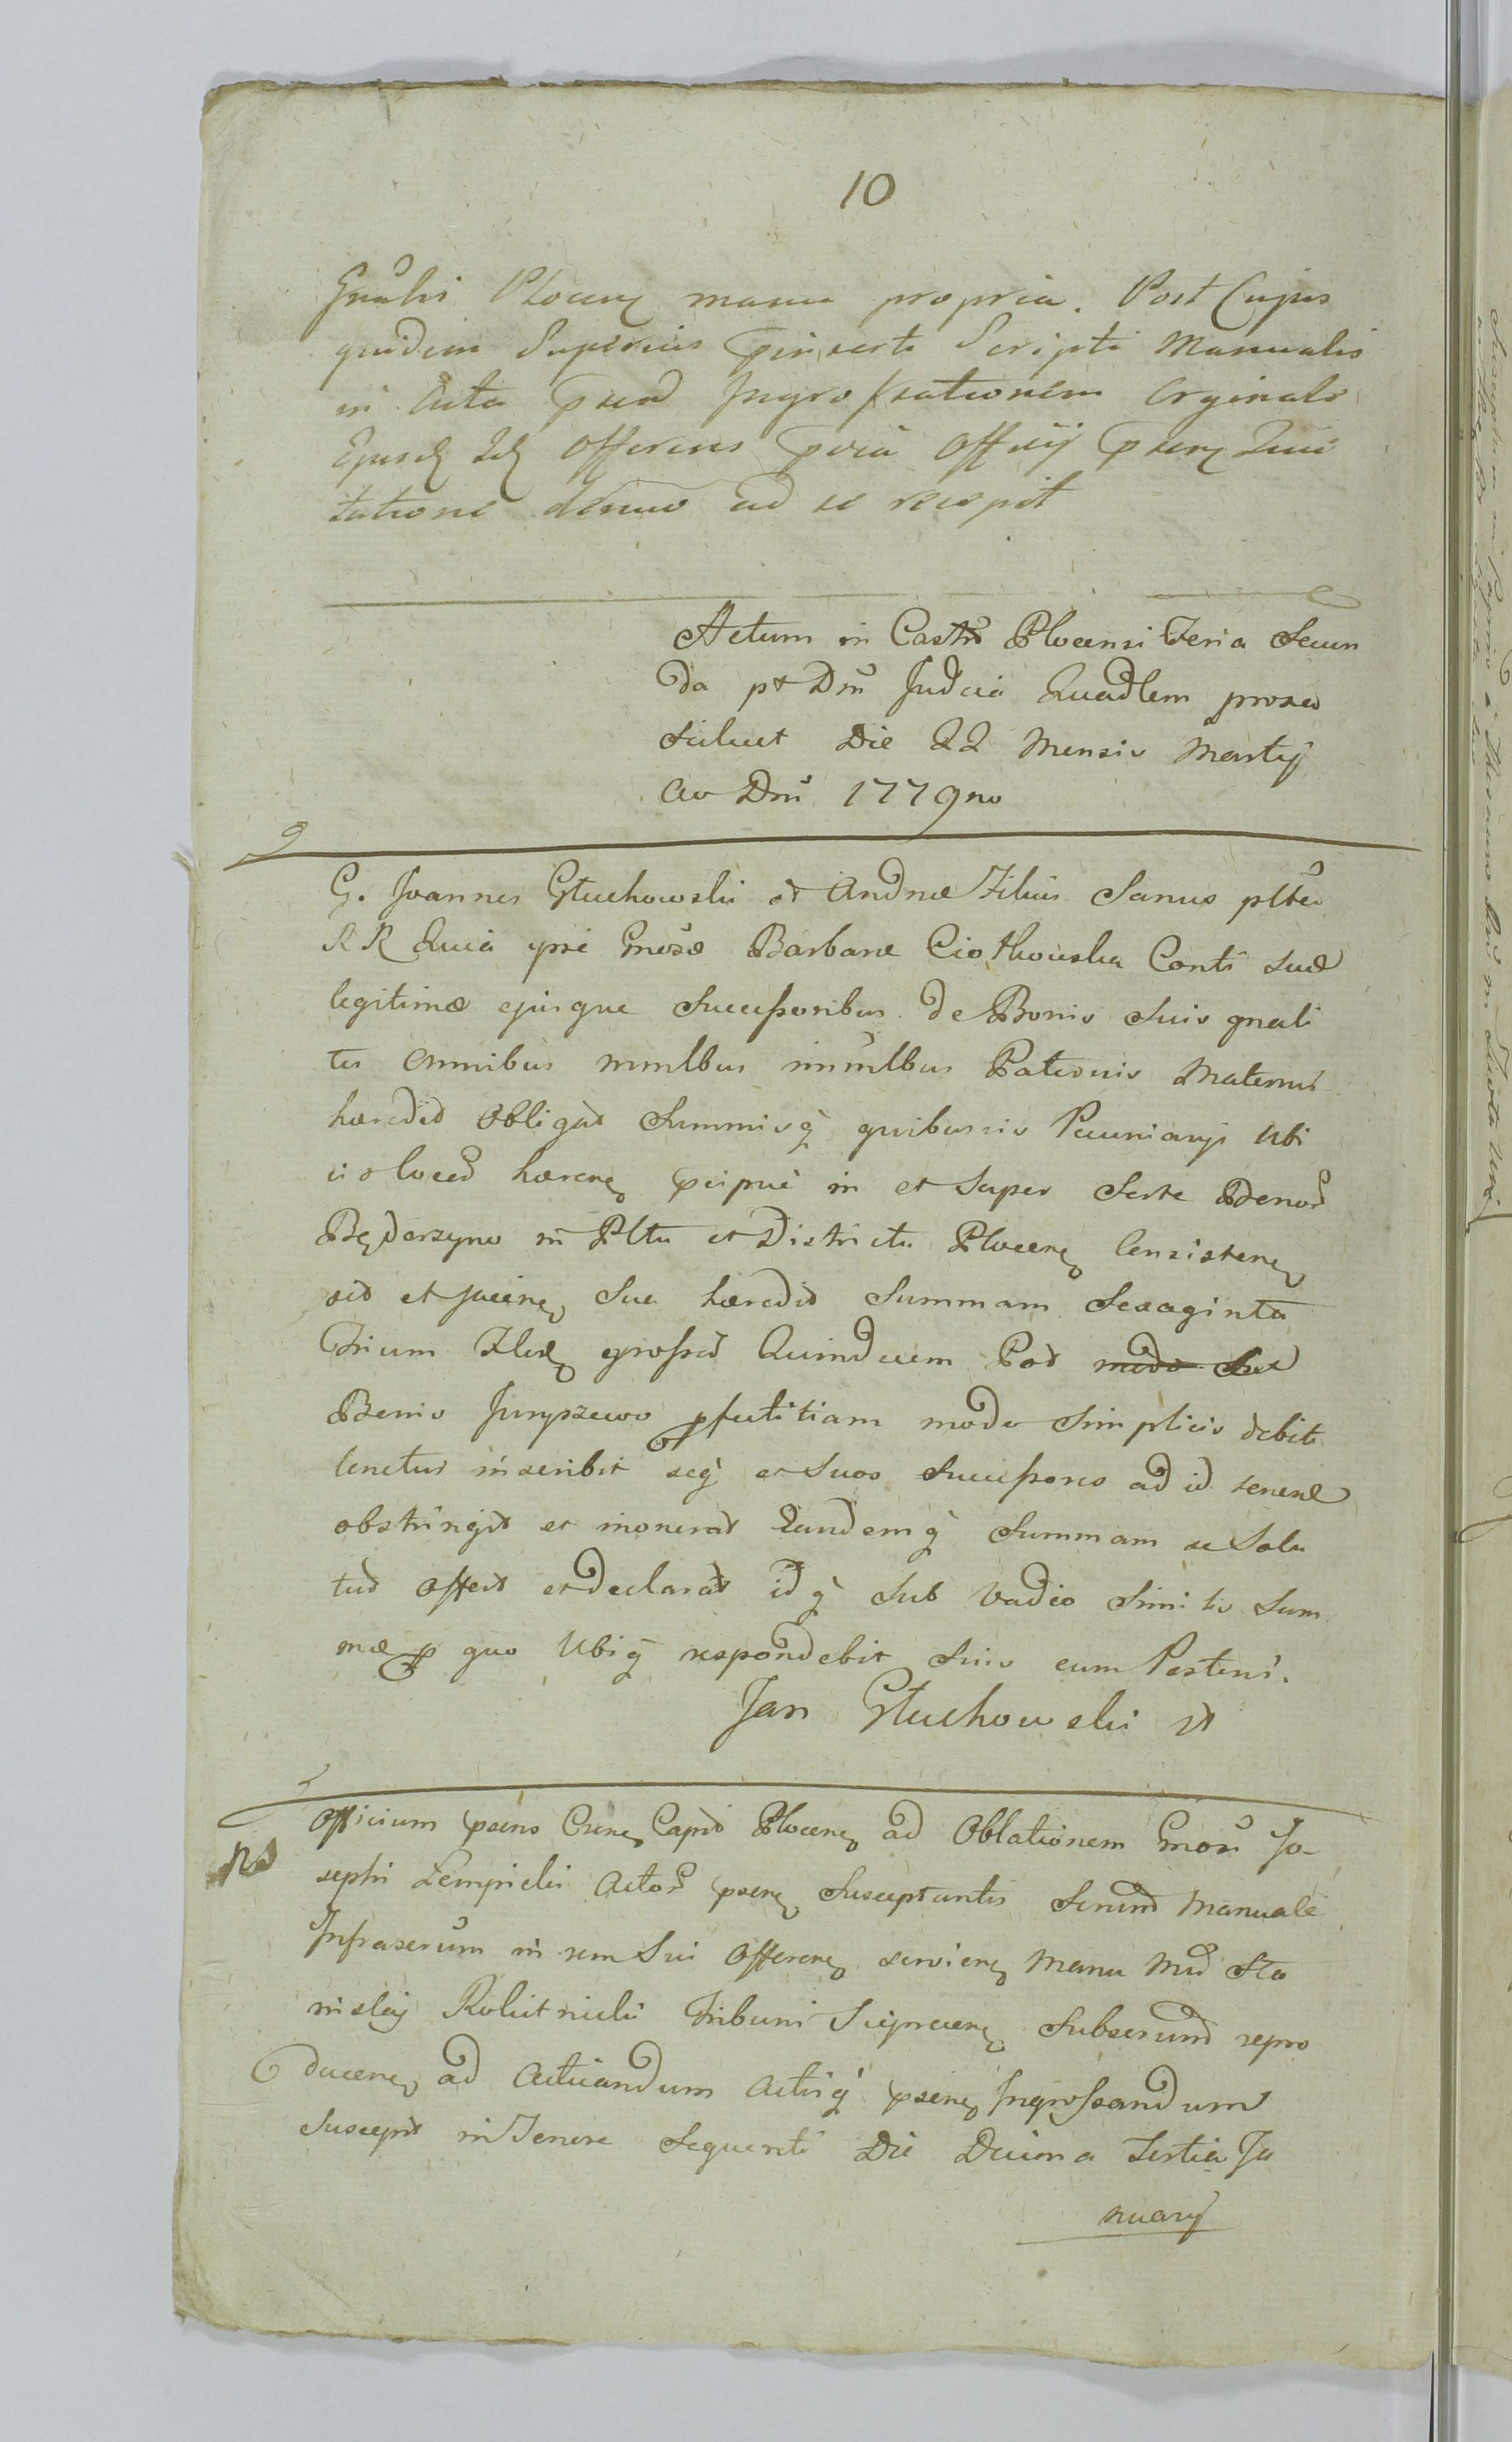 10
Gnalis Plocen manu propria. Post Cujus
quidem Superius pinserti Scripti Manualis
in Acta psend Ingrossationem Orginale
Ejusd Id Offerens pcia Officij psen Quie
tatione denuo ad se recepit
Actum in Castro Plocensi Feria Secun
da pt Dni Judcia Quadlem proxa
Die 22 Mensis Martij
Ao Dni 1779no
G. Joannes Głuchowski ot Andrae Filius Sanus plter
RR Quia ipse Gnosae Barbarae Ciothowska Conti suae
legitimae ejusque Successoribus de Bonis Suis gnali
ter Omnibus mmlbus immlbus Paternis Maternis
haeredid Obligat Summisq quibusvis Pecuniarijs Ubi
vis loced haeren pcipue in et Super Sorte Benor
Będorzyno in Pltu et Districtu Plocen Consisten
sid et jacen Sua haeredid Summam Sexaginta
Trium Flor grossod Quindecem Pod
Bonis Juryszewo modo Simplicis debiti
tenetur inscribit seq et Suos Successores ad id tenend
obstringit et inonerat Eandemq Summam se Solu
tud Offert et declarat idq Sub Vadio Similis Sum
mae p quo Ubiq respondebit Suis cum Posteris.
Jan Głuchowski
Officium psens Crene Capit Plocen ad Oblationem Gnosi Jo-
sephi Lempicki Actor psen Susceptantis Scrium Manuale
Infrascrum in rem Sui Offeren servien Manu Md Sta
nislaj Rokitnicki Tribuni Sieprcen Subscrumd repro
ducen ad Acticandum Actisq psen Ingrossandum
Suscepit in Tenore Sequenti Die Decima Tertia Ja
nuarij